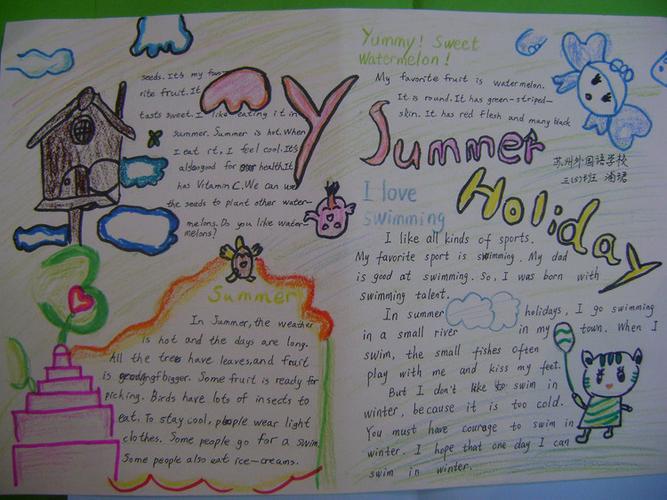 My Summer Holiday
Yummy! Sweet
Watermelon!
My favorite fruit is watermelon.
It is round. It has green-striped-
skin. It has red flesh and many black
seeds. It's my favo-
rite fruit. It
tasts sweet. I like eating it in
summer. Summer is hot. When
I eat it, I feel cool. It's
also good for health. It
has Vitamin C. We can use
the seeds to plant other water-
melons. Do you like water-
melons?
苏州外国语学校
三(5)班
I love
swimming
I like all kinds of sports.
My favorite sport is swimming. My dad
is good at swimming. So, I was born with
swimming talent.
In summer holidays, I go swimming
in a small river in my town. When I
swim, the small fishes often
play with me and kiss my feet.
But I don't like to swim in
winter, because it is too cold.
You must have courage to swim in
winter. I hope that one day I can
swim in winter.
Summer
In Summer, the weather
is hot and the days are long.
All the trees have leaves, and fruit
is bigger. Some fruit is ready for
picking. Birds have lots of insects to
eat. To stay cool, people wear light
clothes. Some people go for a swim.
Some people also eat ice-creams.